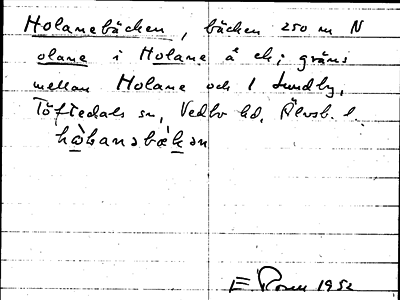 Holanebäcken, bäcken 250 m N
olane i Holane å ek; gräns
mellan Holane och 1 Sundby,
Töftedals sn, Vedbo hd, Älvsb. l.
E Rosen 1952